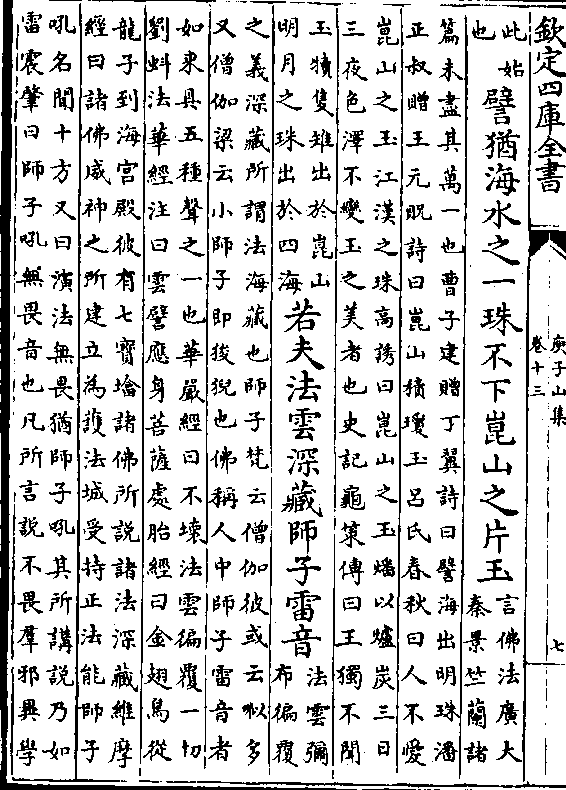 欽定四庫全書
庾子山集
卷十三
七
此始
也
譬猶海水之一珠不下崑山之片玉
言佛法廣大
秦景竺蘭諸
篇未盡其萬一也曹子建贈丁翼詩曰譬海出明珠潘
正叔贈王元貺詩曰崑山積瓊玉呂氏春秋曰人不愛
崑山之玉江漢之珠高誘曰崑山之玉燔以爐炭三日
三夜色澤不變玉之美者也史記龜策傳曰王獨不聞
玉櫝隻雉出於崑山
明月之珠出於四海
若夫法雲深藏師子雷音
法雲彌
布徧覆
之義深藏所謂法海藏也師子梵云僧伽彼或云㕥多
又僧伽梁云小師子即狻猊也佛稱人中師子雷音者
如來具五種聲之一也華嚴經曰不壞法雲徧覆一切
劉蚪法華經注曰雲譬應身菩薩處胎經曰金翅鳥從
龍子到海宮殿彼有七寶墖諸佛所説諸法深藏維摩
經曰諸佛威神之所建立為護法城受持正法能師子
吼名聞十方又曰演法無畏猶師子吼其所講説乃如
雷震肇曰師子吼無畏音也凡所言説不畏羣邪異學